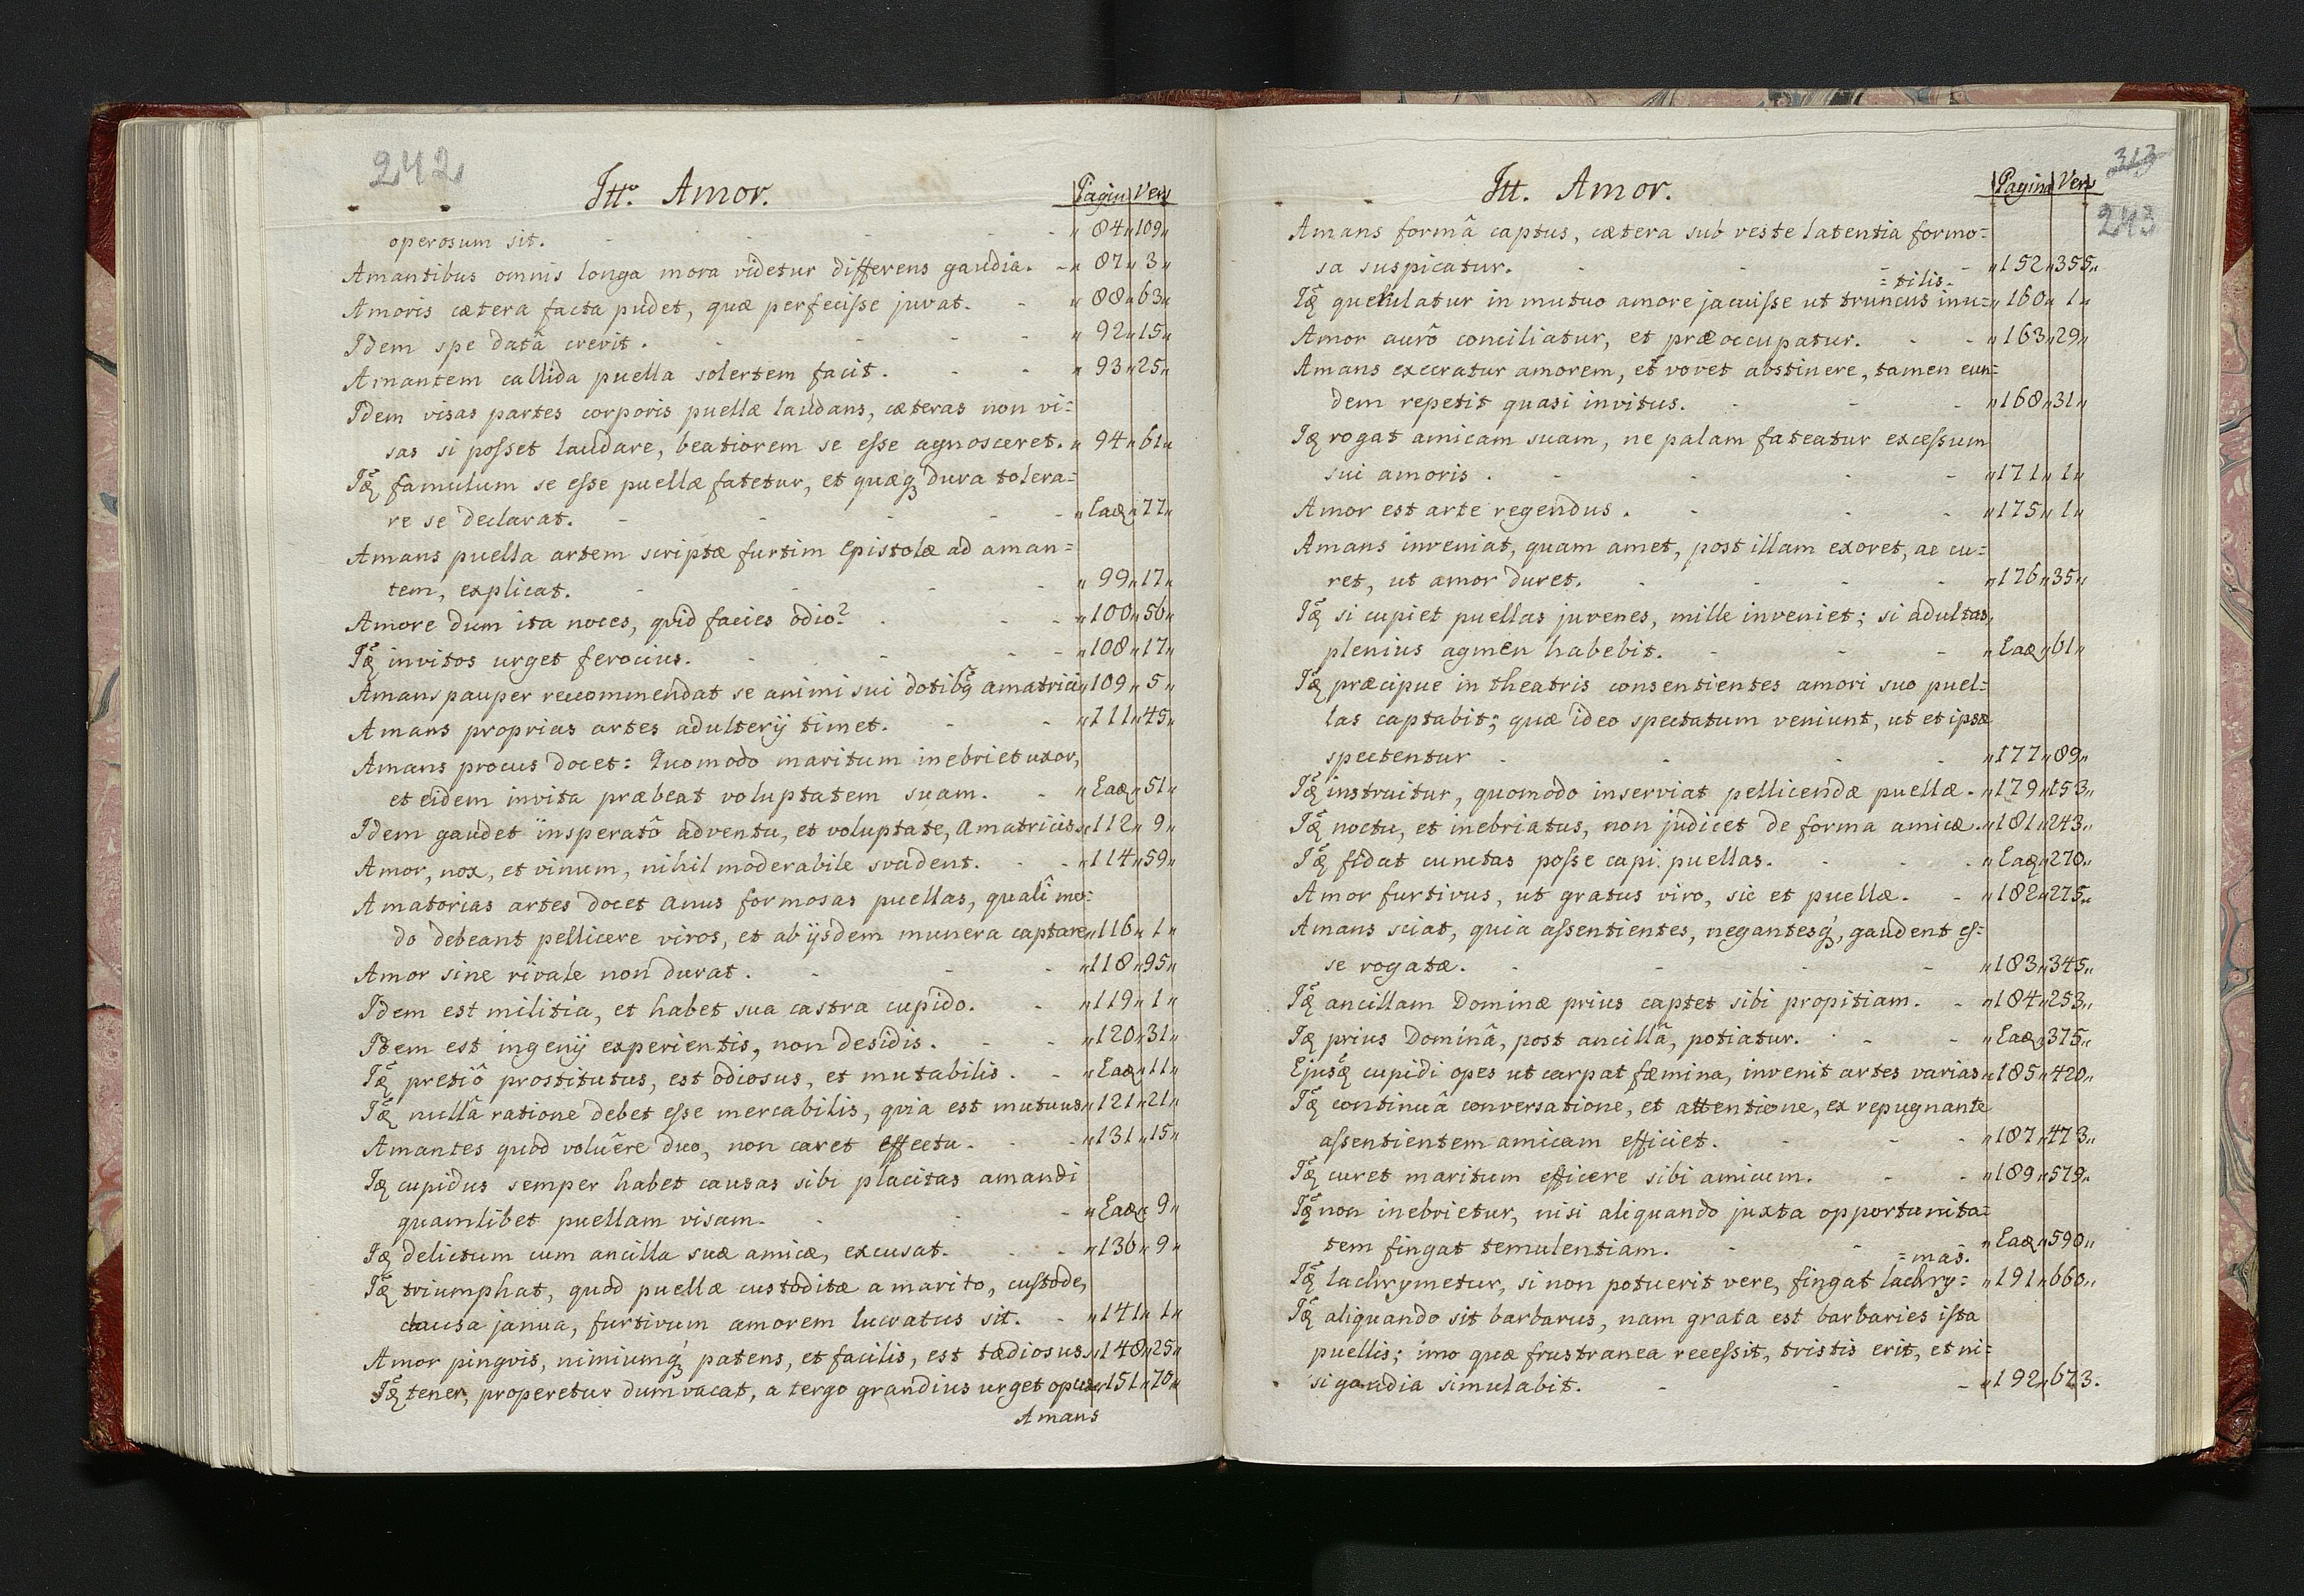 242
Itt. Amor.
Pagin Vers
operosum sit. - - - - - " 84 " 109 "
Amantibus omnis longa mora videtur differens gaudia. - " 87 " 3 "
Amoris cætera facta pudet, quæ perfecisse juvat. - " 88 " 63 "
Idem spe datâ crevit. - - - - " 92 " 15 "
Amantem callida puella solertem facit. - - " 93 " 25 "
Idem visas partes corporis puellæ laudans, cæteras non vi=
sas si posset laudare, beatiorem se esse agnosceret. " 94 " 61 "
Iꝗ famulum se esse puellæ fatetur, et quæqꝫ dura tolera=
re se declarat. - - - - - " Eaꝗ " 77 "
Amans puella artem scriptæ furtim Epistolæ ad aman=
tem, explicat. - - - - - " 99 " 17 "
Amore dum ita noces, qvid facies odio? - - - " 100 " 56 "
Iꝗ invitos urget ferocius. - - - - " 108 " 17 "
Amans pauper reccommendat se animi sui dotibꝗ amatrici " 109 " 5 "
Amans proprias artes adulterij timet. - - " 111 " 45 "
Amans procus docet: Quomodo maritum inebriet uxor,
et eidem invita præbeat voluptatem suam. - " Eaꝗ " 51 "
Idem gaudet insperatô adventu, et voluptate, Amatricis " 112 " 9 "
Amor, nox, et vinum, nihil moderabile svadent. - - " 114 " 59 "
Amatorias artes docet Anus formosas puellas, qualî mo=
do debeant pellicere viros, et ab ijsdem munera captare " 116 " 1 "
Amor sine rivale non durat. - - - " 118 " 95 "
Idem est militia, et habet sua castra cupido. - " 119 " 1 "
Idem est ingenij experientis, non desidis. - - " 120 " 31 "
Iꝗ pretiô prostitutus, est odiosus, et mutabilis. - " Eaꝗ " 11 "
Iꝗ nullâ ratione debet esse mercabilis, qvia est mutuus " 121 " 21 "
Amantes quod volûere duo, non caret effectu. - - " 131 " 15 "
Iꝗ cupidus semper habet causas sibi placitas amandi
quamlibet puellam visam. - - - " Eaꝗ " 9 "
Iꝗ delictum cum ancilla suæ amicæ, excusat. - - " 136 " 9 "
Iꝗ triumphat, quod puellæ custoditæ a marito, custode,
clausa janua, furtivum amorem lucratus sit. - " 141 " 1 "
Amor pingvis, nimiumqꝫ patens, et facilis, est tædiosus " 148 " 25 "
Iꝗ tener, properetur dum vacat, a tergo grandius urget opus " 151 " 70 "
Amans
313
243
Itt. Amor.
Pagina Vers
Amans formâ captus, cætera sub veste latentia formo=
sa suspicatur. - - - " 152 " 355 "
=tilis.
Iꝗ querulatur in mutuo amore jacuisse ut truncus inu= " 160 " 1 "
Amor aurô conciliatur, et præoccupatur. - - " 163 " 29 "
Amans execratur amorem, et vovet abstinere, tamen eun=
dem repetit quasi invitus. - - - " 168 " 31 "
Iꝗ rogat amicam suam, ne palam fateatur excessum
sui amoris. - - - - " 171 " 1 "
Amor est arte regendus. - - - " 175 " 1 "
Amans inveniat, quam amet, post illam exoret, ac cu=
ret, ut amor duret. - - - - " 176 " 35 "
Iꝗ si cupiet puellas juvenes, mille inveniet; si adultas,
plenius agmen habebit. - - - " Eaꝗ " 61 "
Iꝗ præcipue in theatris consentientes amori suo puel=
las captabit; quæ ideo spectatum veniunt, ut et ipsæ
spectentur - - - - " 177 " 89 "
Iꝗ instruitur, quomodo inserviat pellicendæ puellæ. " 179 " 153 "
Iꝗ noctu, et inebriatus, non judicet de forma amicæ. " 181 " 243 "
Iꝗ fidat cunctas posse capi puellas. - - - " Eaꝗ " 270 "
Amor furtivus, ut gratus viro, sic et puellæ. - " 182 " 275 "
Amans sciat, quia assentientes, negantesqꝫ, gaudent es=
se rogatæ. - - - - " 183 " 345 "
Iꝗ ancillam Dominæ prius captet sibi propitiam. - " 184 " 253 "
Iꝗ prius Dominâ, post ancillâ, potiatur. - - " Eaꝗ " 375 "
Ejusꝗ cupidi opes ut carpat fæmina, invenit artes varias " 185 " 420 "
Iꝗ continuâ conversatione, et attentione, ex repugnante
assentientem amicam efficiet. - - - " 187 " 473 "
Iꝗ curet maritum efficere sibi amicum. - - " 189 " 579 "
Iꝗ non inebrietur, nisi aliquando juxta opportunita=
tem fingat temulentiam. - - " Eaꝗ " 590 "
=mas.
Iꝗ lachrymetur, si non potuerit vere, fingat lachry= " 191 " 660 "
Iꝗ aliquando sit barbarus, nam grata est barbaries ista
puellis; imo quæ frustranea recessit, tristis erit, et ni=
si gaudia simulabit. - - - " 192 " 673.